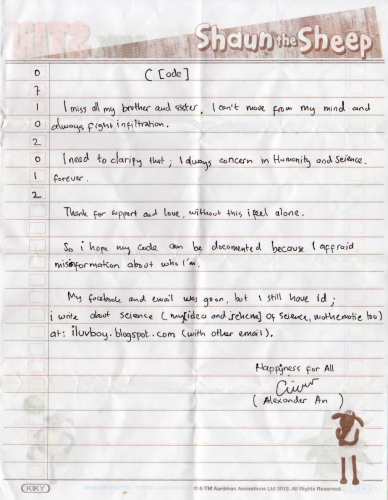 Shaun the Sheep
0
7
1
0
2
0
1
2
C [ode]
I miss all my brother and sister, I can't move from my mind and
always fight infiltration.
I need to clarify that ; I always concern in Humanity and Science.
forever.
Thank for support and love, without this i feel alone.
So i hope my code can be documented because I affraid
misinformation about who I'm.
My facebook and email was goon, but I still have id ;
i write about science ( my idea and scheme of science, mathematic too)
at: iluvboy.blogspot.com (with other email).
Happyness for All
( Alexander An )
KIKY
© & TM Aardman Animations Ltd 2012. All Rights Reserved.